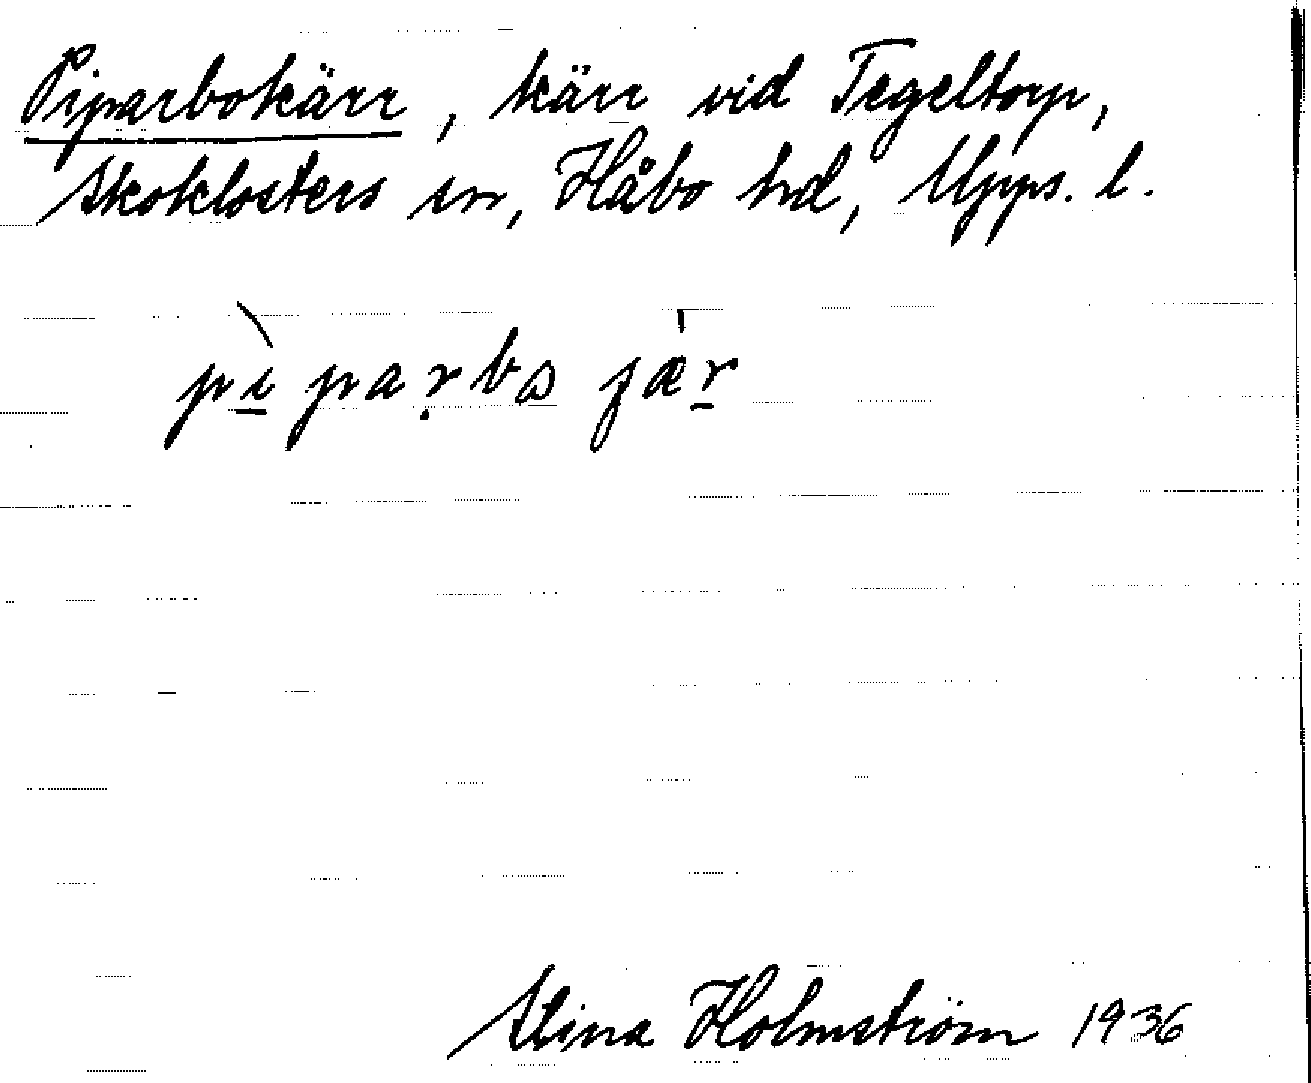 Piparbokärr, kärr vid Tegeltorp,
Skoklosters sn, Håbo hd, Upps. l.
pìparbs jær
Stina Holmström 1936